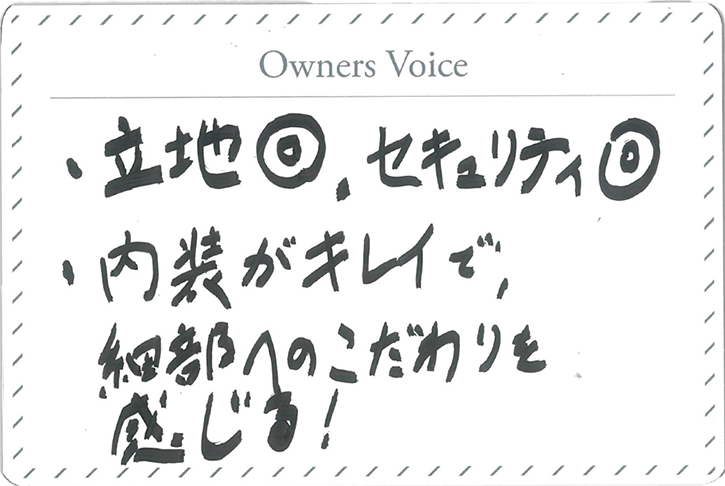 Owners Voice
・立地◎、セキュリティ◎
・内装がキレイで、
細部へのこだわりを
感じる!